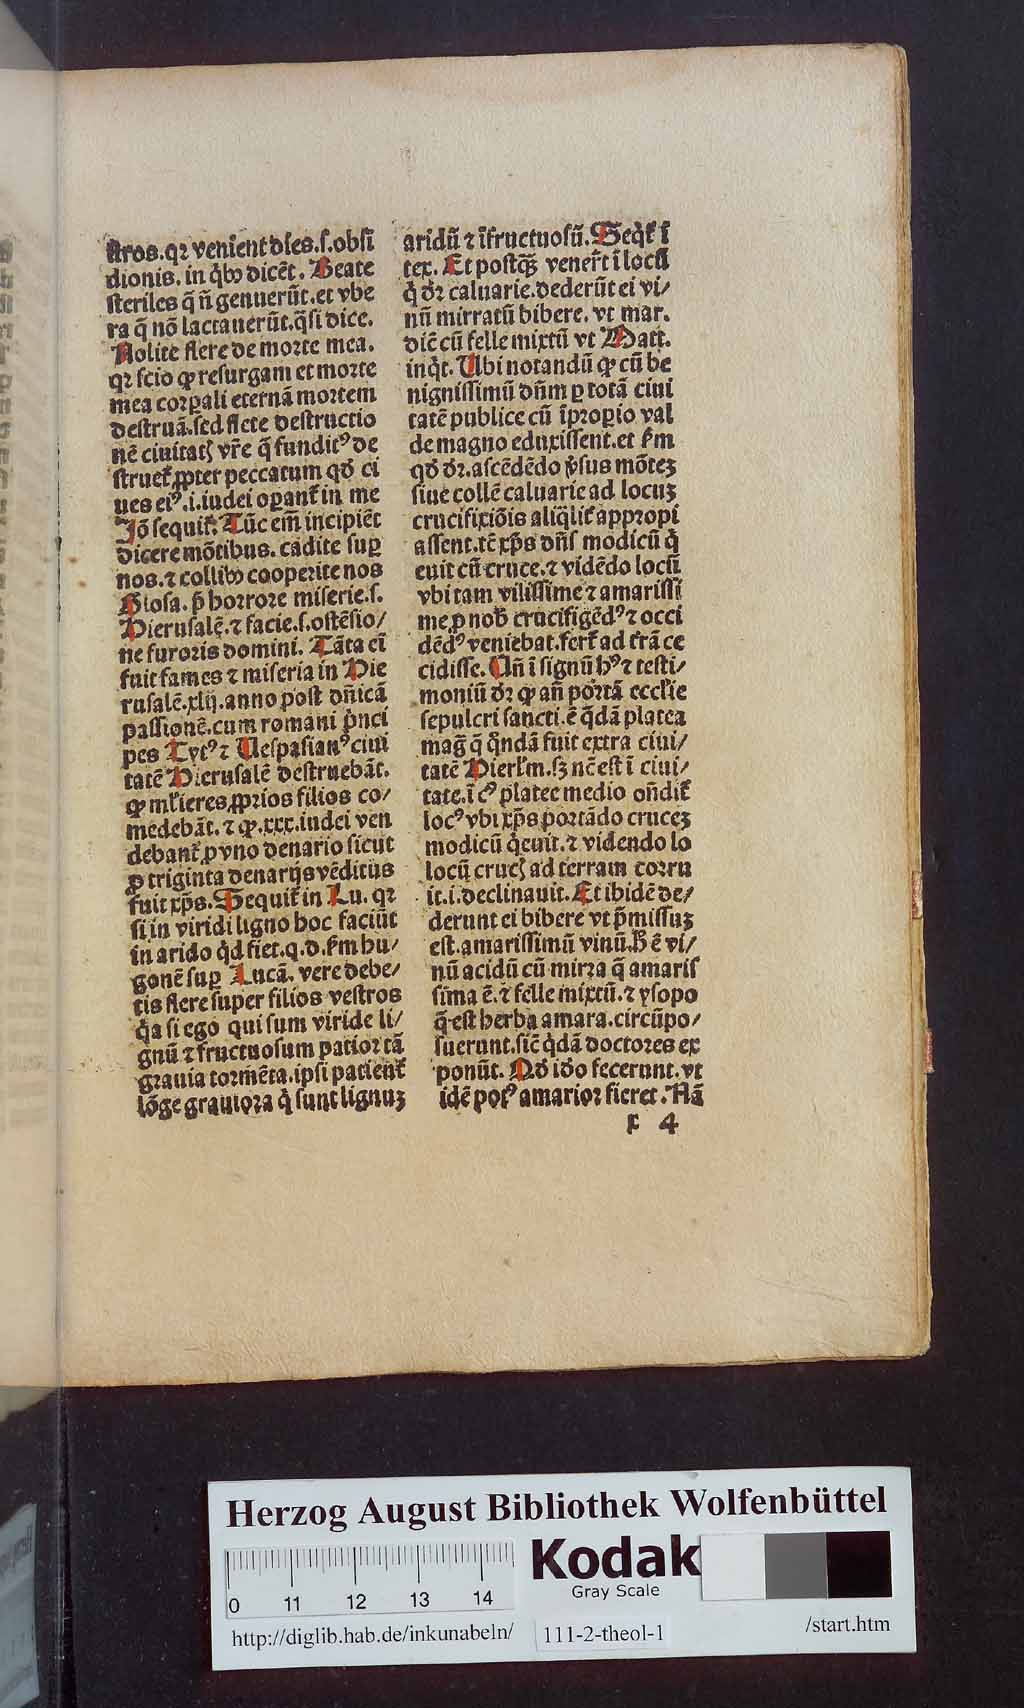 stros. qꝛ venient dies. s. obsi
dionis. in qͥbꝰ dicēt. Beate
steriles q̄ nō genuerūt. et vbe
ra q̄ nō lactauerūt. q̄si dice.
Nolite flere de morte mea.
qꝛ scio ꝙ resurgam et morte
mea corꝑali eternā mortem
destruā. sed flete destructio
nē ciuitatꝭ vr̄e q̄ funditꝰ de
struet᷑ ꝓpter peccatum qd̓ ci
ues eiꝰ .i. iudei oꝑant᷑ in me
Jō sequit᷑. Tūc em̄ incipiēt
dicere mōtibus. cadite suꝑ
nos. ⁊ collibꝰ cooperite nos
Glosa. p̄ horrore miserie. s.
Hierusalē. ⁊ facie. s. ostēsio/
ne furoris domini. Tāta eī
fuit fames ⁊ miseria in Hie
rusalē. xlij. anno post dn̄icā
passionē. cum romani pͥnci
pes Tytꝰ ⁊ Vespasianꝰ ciui
tatē Hierusalē destruebāt.
ꝙ ml̓ieres ꝓprios filios co/
medebāt. ⁊ ꝙ .xxx. iudei ven
debant᷑ ꝓ vno denario sicut
ꝓ triginta denarijs vēditus
fuit xp̄s. Sequit᷑ in Lu. qꝛ
si in viridi ligno hoc faciūt
in arido qͥd fiet. q. d. ẜm hu/
gonē suꝑ Lucā. vere debe/
tis flere super filios vestros
qͥa si ego qui sum viride li/
gnū ⁊ fructuosum patior tā
grauia tormēta. ipsi patient᷑
lōge grauiora qͥ sunt lignuꝫ
aridū ⁊ īfructuosū. Seqͥt᷑ ī
tex. Et postqꝫ̄ vener̄t ī locū
qͥ dꝛ̄ caluarie. dederūt ei vi/
nū mirratū bibere. vt mar.
diē cū felle mixtū vt Matt.
inqͥt. Ubi notandū ꝙ cū be
nignissimū dn̄m ꝑ totā ciui
tatē publice cū īproꝑio val
de magno eduxissent. et ẜm
qd̓ dꝛ̄. ascēdēdo v̓sus mōteꝫ
siue collē caluarie ad locuꝫ
crucifixiōis aliqͥlit᷑ appropi
assent. tē xp̄s dn̄s modicū qͥ
euit cū cruce. ⁊ vidēdo locū
vbi tam vilissime ⁊ amarissi
me ꝓ nob̓ crucifigēdꝰ ⁊ occi
dēdꝰ veniebat. fert᷑ ad tr̄ā ce
cidisse. Un̄ ī signū hꝰ ⁊ testi/
moniū dꝛ̄ ꝙ an̄ portā eccl̓ie
sepulcri sancti. ē qͥdā platea
maḡ q̄ qͦndā fuit extra ciui/
tatē Hierl̓m. sꝫ nc̄ est ī ciui/
tate. ī cꝰ platee medio on̄dit᷑
locꝰ vbi xp̄s portādo cruceꝫ
modicū qͥeuit. ⁊ videndo lo
locū crucꝭ ad terram corru
it. i. declinauit. Et ibidē de/
derunt ei bibere vt p̄missuꝫ
est. amarissimū vinū. H̓ ē vi/
nū acidū cū mirra q̄ amaris
sima ē. ⁊ felle mixtū. ⁊ ysopo
q̄ est herba amara. circūpo/
suerunt. sic̄ qͥdā doctores ex
ponūt. Qd̓ iō fecerunt. vt
idē potꝰ amarior fieret. Nā
f 4
Herzog August Bibliothek Wolfenbüttel
Kodak
Gray Scale
0 11 12 13 14
http://diglib.hab.de/inkunabeln/ 111-2-theol-1 /start.htm